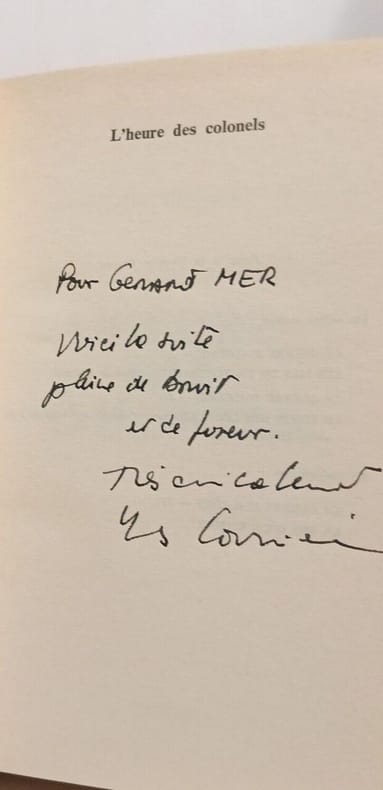 L'heure des colonels
Pour Gérard MER
Voici la suite
pleine de bruit
et de fureur.
Très amicalement
Yves Courrière